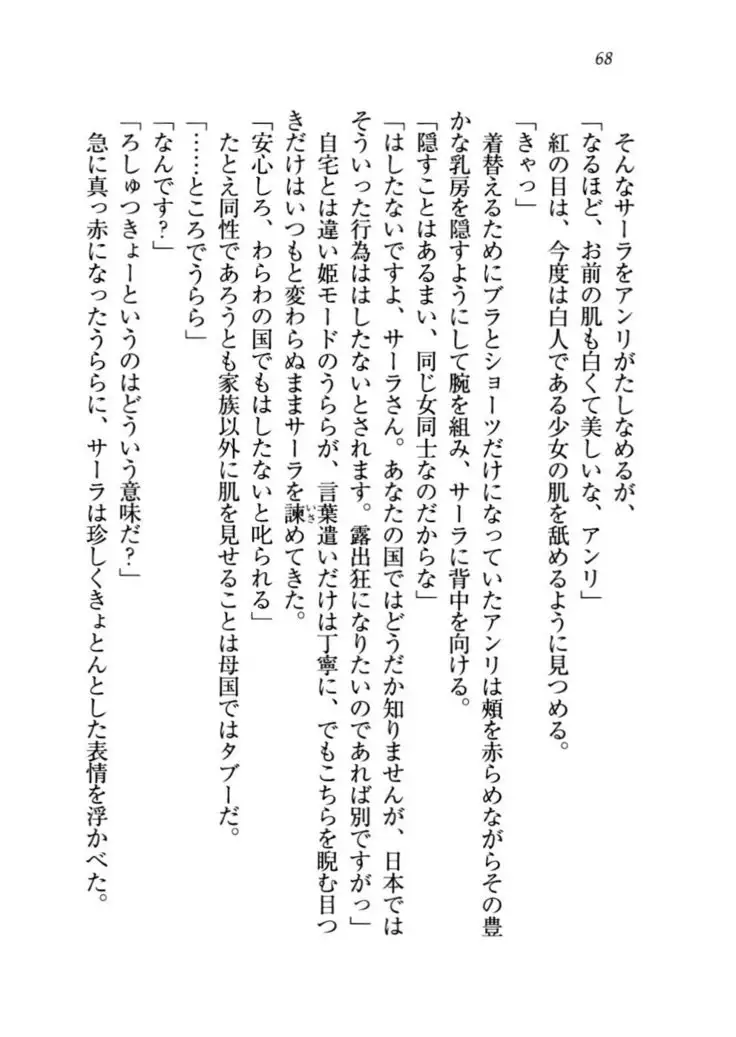 68
そんなサーラをアンリがたしなめるが、
「なるほど、お前の肌も白くて美しいな、アンリ」
紅の目は、今度は白人である少女の肌を舐めるように見つめる。
「きゃっ」
着替えるためにブラとショーツだけになっていたアンリは頰を赤らめながらその豊
かな乳房を隠すようにして腕を組み、サーラに背中を向ける。
「隠すことはあるまい、同じ女同士なのだからな」
「はしたないですよ、サーラさん。あなたの国ではどうだか知りませんが、日本では
そういった行為ははしたないとされます。露出狂になりたいのであれば別ですがっ」
自宅とは違い姫モードのうららが、言葉遣いだけは丁寧に、でもこちらを睨む目つ
きだけはいつもと変わらぬままサーラを諫めてきた。
「安心しろ、わらわの国でもはしたないと叱られる」
たとえ同性であろうとも家族以外に肌を見せることは母国ではタブーだ。
「……ところでうらら」
「なんです？」
「ろしゅつきょーというのはどういう意味だ？」
急に真っ赤になったうららに、サーラは珍しくきょとんとした表情を浮かべた。